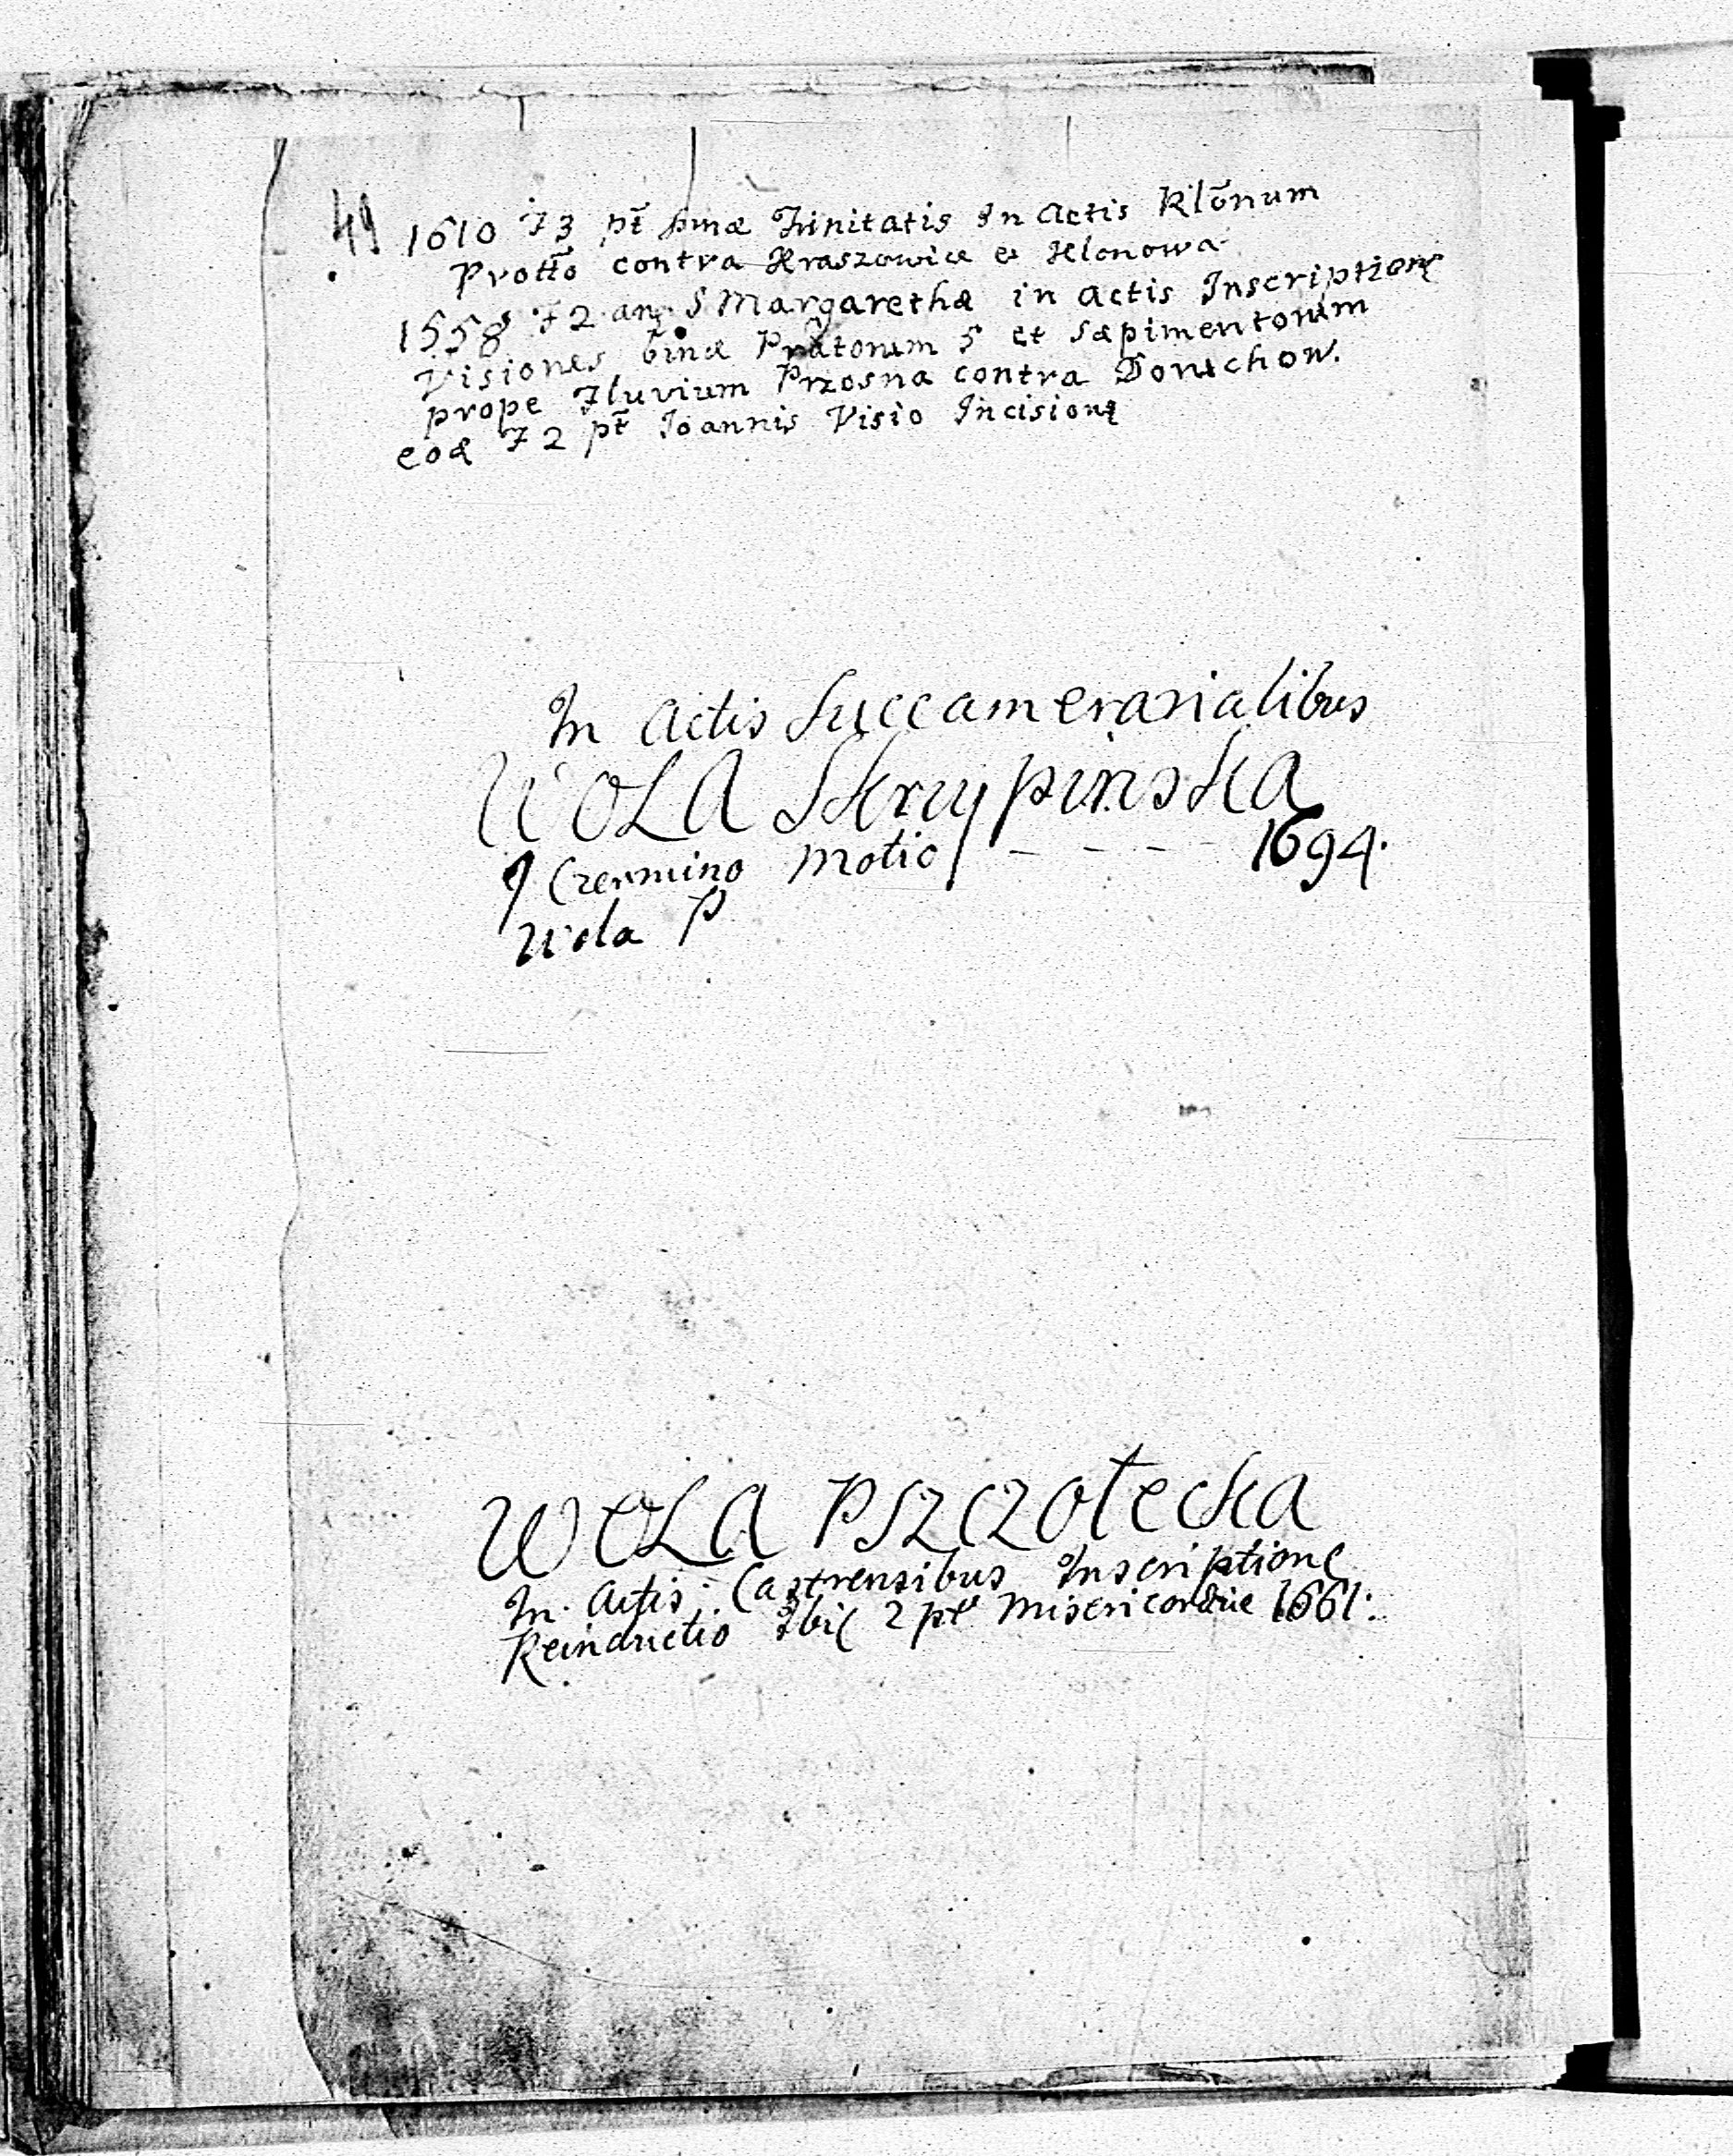 49 1610 f 3 pt̄ smæ Trinitatis In Actis Rlōnum
Prottō contra Kraszowice et Klonowa
1558 f 2 an S Margarethæ in Actis Inscriptionę
Visiones binæ Pratorum 5 et Sæpimentorum
prope Fluvium Przosna contra Doruchow.
eod f 2 pt̄ Ioannis Visio Incisionę
In Actis Succamerarialibus
WOLA Skrzypinska
J Czermino Motio - - - - 1694.
Wola P
WOLA PSZCZołecka
In Actis Castrensibus Inscriptione
Reinductio 2 pt Misericordiæ 1661.